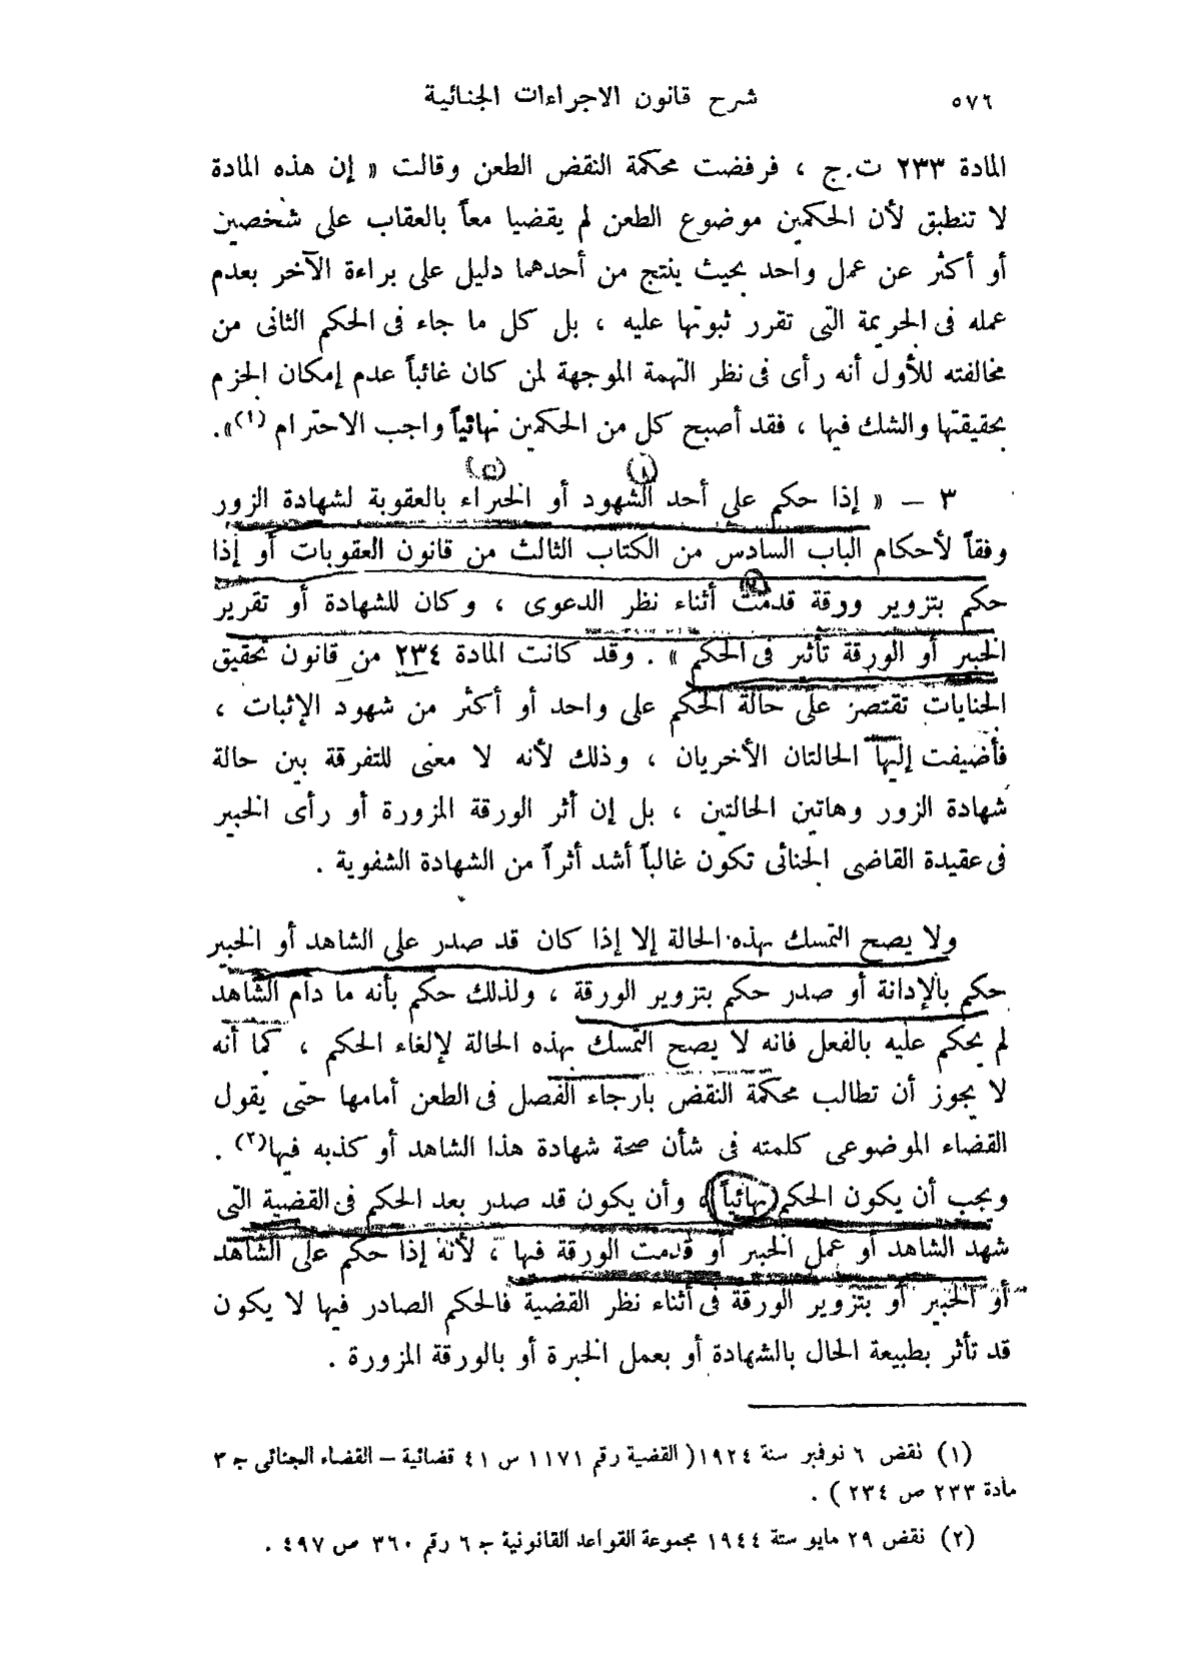 ٥٧٦
شرح قانون الاجراءات الجنائية
المادة ٢٣٣ ت.ج ، فرفضت محكمة النقض الطعن وقالت « إن هذه المادة
لا تنطبق لأن الحكمين موضوع الطعن لم يقضيا معاً بالعقاب على شخصين
أو أكثر عن عمل واحد بحيث ينتج من أحدهما دليل على براءة الآخر بعدم
عمله فى الجريمة التى تقرر ثبوتها عليه ، بل كل ما جاء فى الحكم الثانى من
مخالفته للأول أنه رأى فى نظر التهمة الموجهة لمن كان غائباً عدم إمكان الجزم
بحقيقتها والشك فيها ، فقد أصبح كل من الحكمين نهائياً واجب الاحترام (١)».
٣ – « إذا حكم على أحد الشهود أو الخبراء بالعقوبة لشهادة الزور
وفقاً لأحكام الباب السادس من الكتاب الثالث من قانون العقوبات أو إذا
حكم بتزوير ورقة قدمت أثناء نظر الدعوى ، وكان للشهادة أو تقرير
الخبير أو الورقة تأثير فى الحكم » . وقد كانت المادة ٢٣٤ من قانون تحقيق
الجنايات تقتصر على حالة الحكم على واحد أو أكثر من شهود الإثبات ،
فأضيفت إليها الحالتان الأخريان ، وذلك لأنه لا معنى للتفرقة بين حالة
شهادة الزور وهاتين الحالتين ، بل إن أثر الورقة المزورة أو رأى الخبير
فى عقيدة القاضى الجنائى تكون غالباً أشد أثراً من الشهادة الشفوية .
ولا يصح التمسك بهذه الحالة إلا إذا كان قد صدر على الشاهد أو الخبير
حكم بالإدانة أو صدر حكم بتزوير الورقة ، ولذلك حكم بأنه ما دام الشاهد
لم يحكم عليه بالفعل فانه لا يصح التمسك بهذه الحالة لإلغاء الحكم ، كما أنه
لا يجوز أن تطالب محكمة النقض بارجاء الفصل فى الطعن أمامها حتى يقول
القضاء الموضوعى كلمته فى شأن صحة شهادة هذا الشاهد أو كذبه فيها(٢) .
ويجب أن يكون الحكم نهائياً ، وأن يكون قد صدر بعد الحكم فى القضية التى
شهد الشاهد أو عمل الخبير أو قدمت الورقة فيها ، لأنه إذا حكم على الشاهد
أو الخبير أو بتزوير الورقة فى أثناء نظر القضية فالحكم الصادر فيها لا يكون
قد تأثر بطبيعة الحال بالشهادة أو بعمل الخبرة أو بالورقة المزورة .
(١) نقض ٦ نوفمبر سنة ١٩٢٤( القضية رقم ١١٧١ س ٤١ قضائية – القضاء الجنائى ج ٣
مادة ٢٣٣ ص ٢٣٤ ) .
(٢) نقض ٢٩ مايو ستة ١٩٤٤ مجموعة القواعد القانونية ج ٦ رقم ٣٦٠ ص ٤٩٧ .